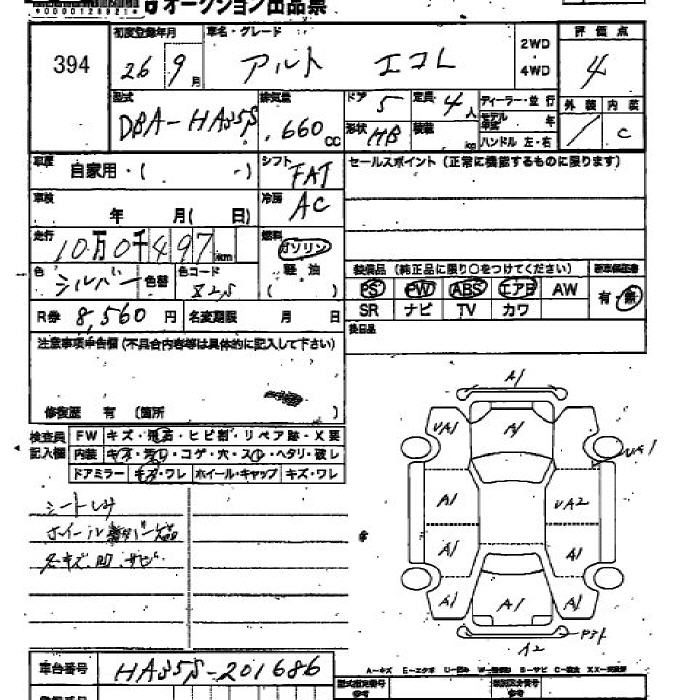 *0000012892*
オークション出品票
394
初度登録年月
26 9 月
車名・グレード
アルト エコL
2WD
・
4WD
評価点
4
型式
DBA-HA35S
排気量
.660 CC
ドア 5
定員 4 人
形状 HB
積載 kg
ディーラー・並行
モデル年式 年
ハンドル 左・右
外装 内装
/ C
車歴
自家用・( )
シフト
FAT
セールスポイント(正常に機能するものに限ります)
車検
年 月( 日)
冷房
AC
走行
10万0千497 km
燃料
ガソリン
軽油
( )
色
シルバー
色替
色コード
Z2S
装備品(純正品に限り○をつけてください)
新車保証書
PS PW ABS エアB AW
有・無
SR ナビ TV カワ
R券 8,560 円
名変期限 月 日
後日品
注意事項申告欄(不具合内容等は具体的に記入して下さい)
修復歴 有 (箇所 )
検査員
記入欄
FW キズ・飛石・ヒビ割・リペア跡・X要
内装 キズ・汚れ・コゲ・穴・スレ・ヘタリ・破レ
ドアミラー キズ・ワレ ホイール・キャップ キズ・ワレ
シートしみ
ホイール
多キズ、凹、サビ
A1
UA1 A1
UA1
A1 UA2
A1 A1
A1 A1 A1
車台番号
HA35S-201686
A-キズ E-エクボ U-凹み W-補修跡 S-サビ C-腐食 XX-交換済
型式指定番号
参考
類別区分番号
参考